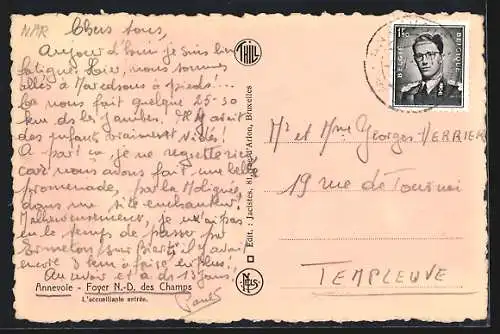 NMR
Chers tous,
Aujourd'hui je suis bien
fatiguée. Hier, nous sommes
allés à Maredsous à pieds!...
Ça nous fait quelque 25-30
km ds les jambes! Il y avait
des enfants vraiment vidés!
A part ça, je ne regrette rien
car nous avons fait une belle
promenade, par la Molignée,
dans un site enchanteur!
Malheureusement, je n'ai pas
eu le temps de passer par
Ermeton sur Biert: il y avait
encore 3 km à faire en plus!
Au revoir et à ds 13 jours,
Annevoie - Foyer N.-D. des Champs
L'accueillante entrée.
THILL
Edit.: Jacistes, Rue d'Arlon, Bruxelles
NELS
1F50
BELGIE BELGIQUE
Mr et Mme Georges VERRIER
19 rue de Tournai
TEMPLEUVE